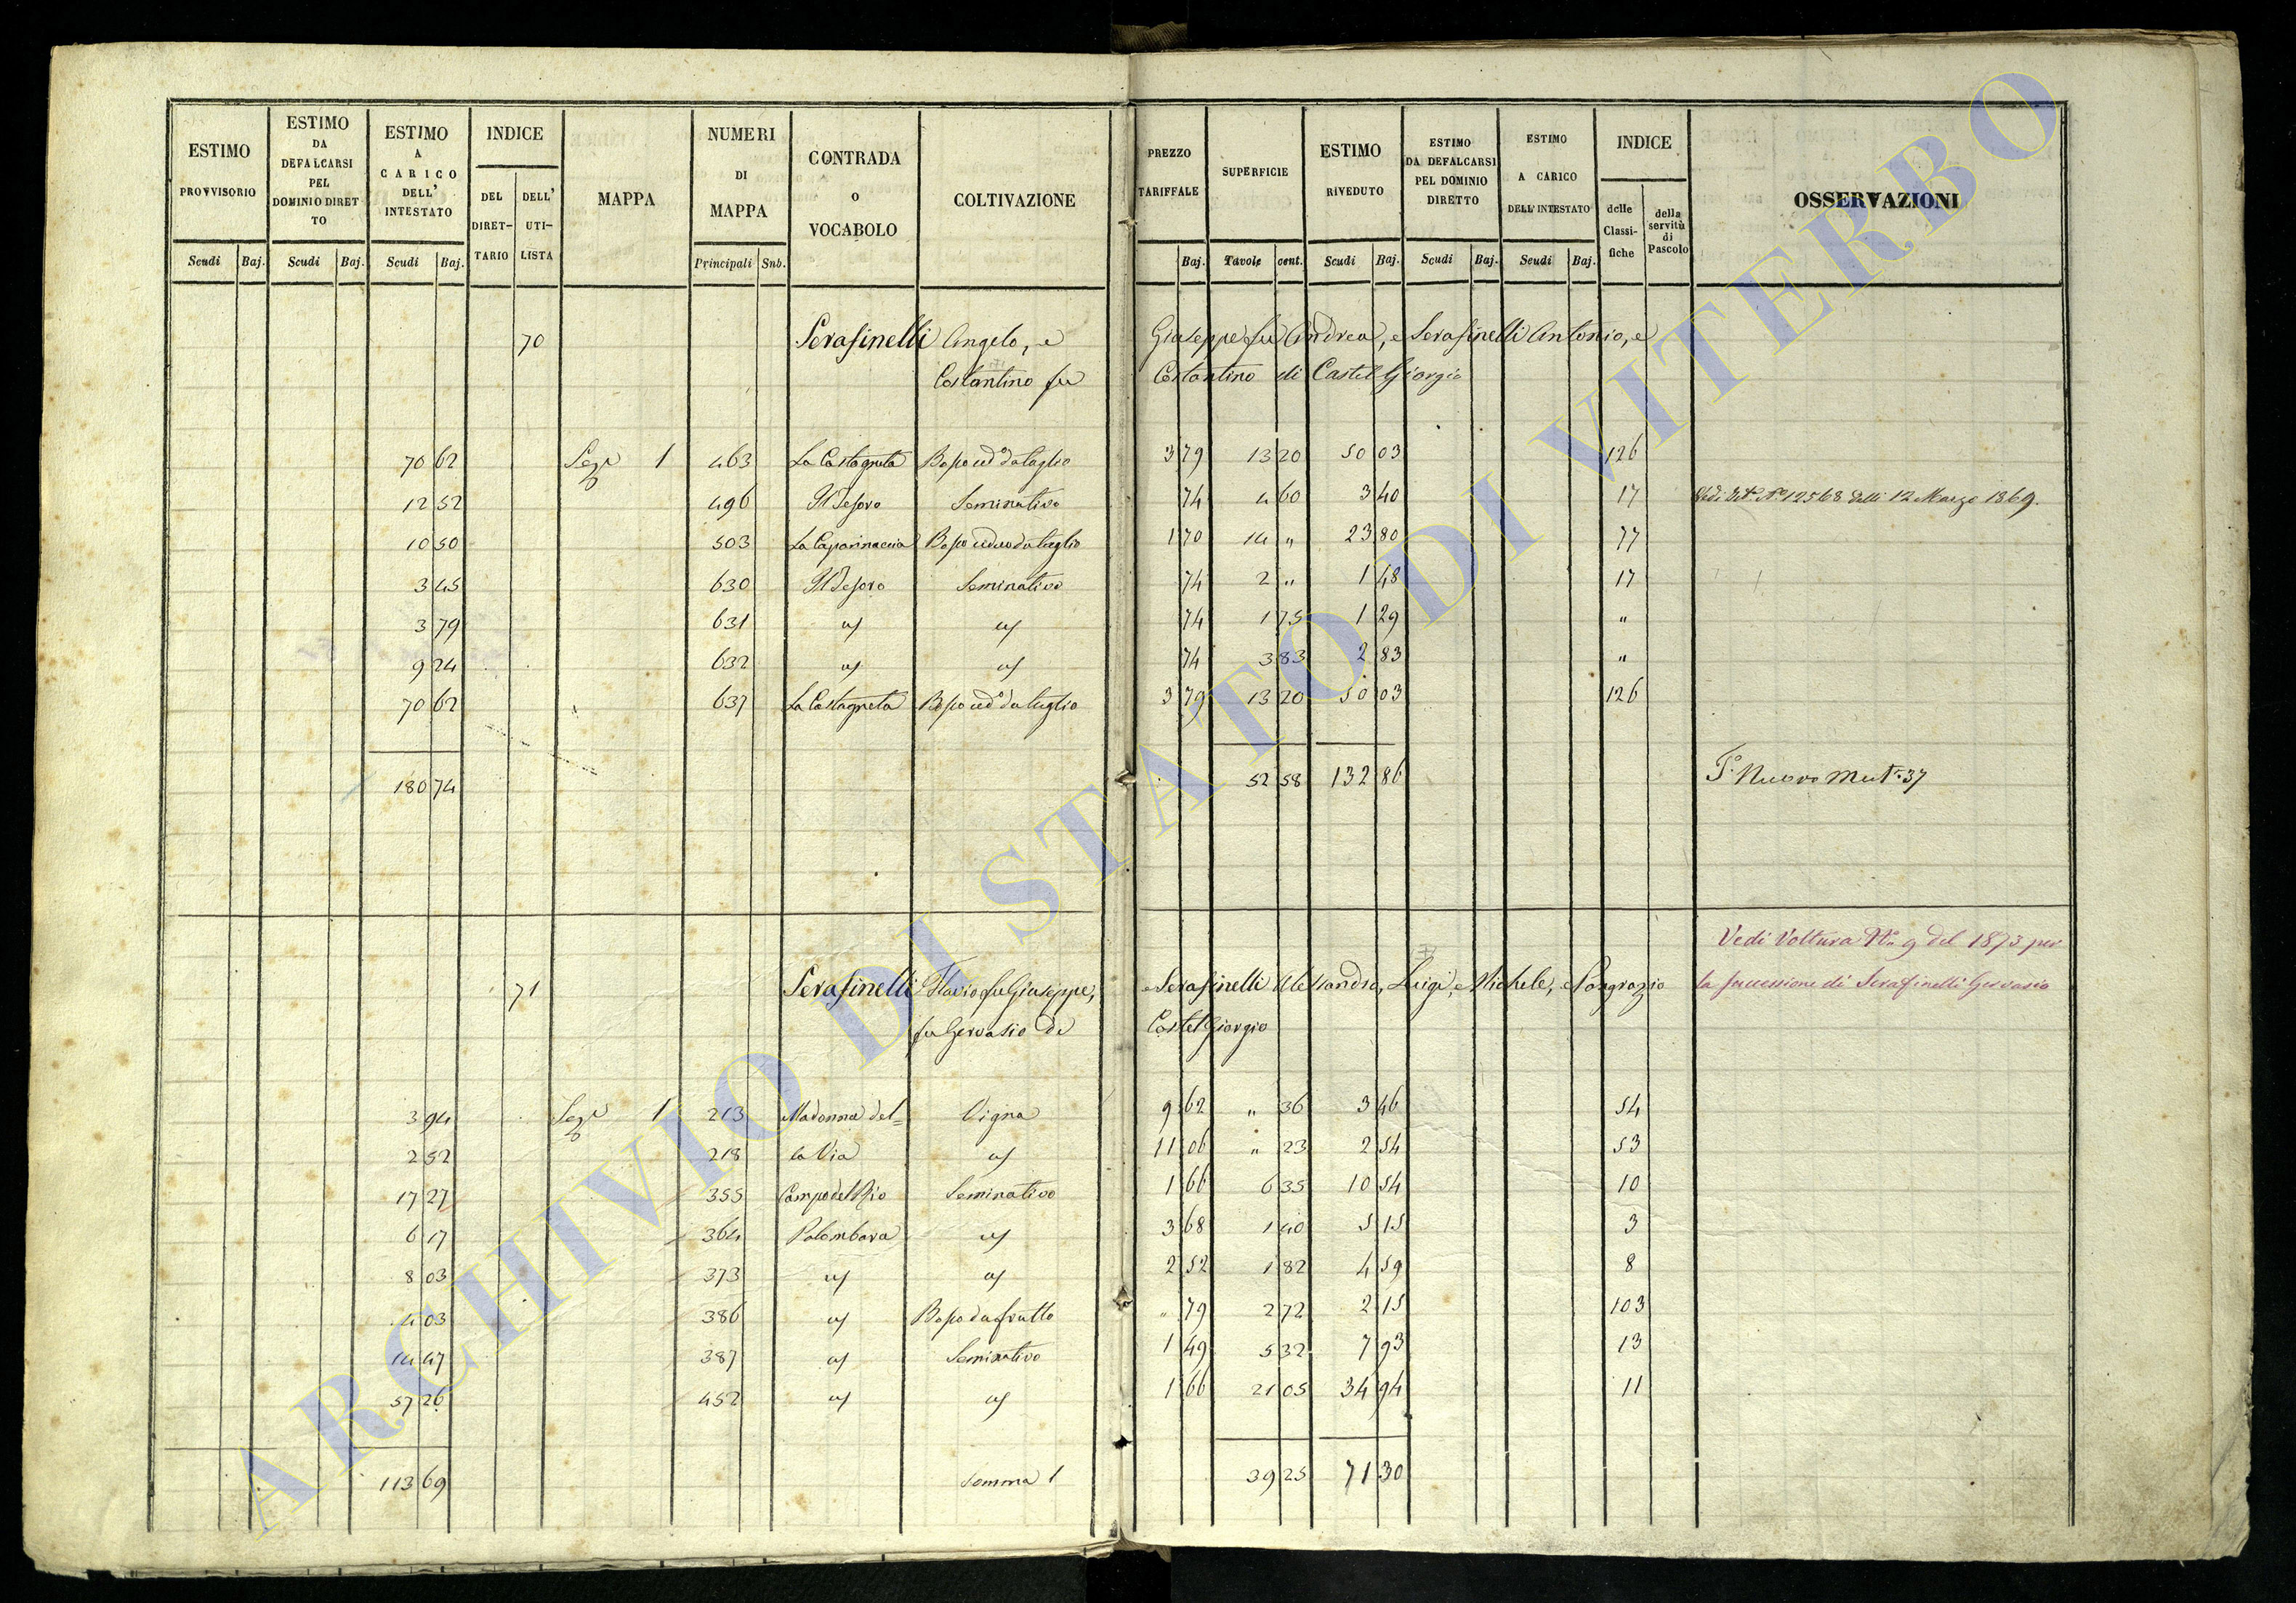 ESTIMO PROVVISORIO
ESTIMO DA DEFALCARSI PEL DOMINIO DIRETTO
ESTIMO A CARICO DELL' INTESTATO
INDICE
DEL DIRETTARIO
DELL' UTILISTA
MAPPA
NUMERI DI MAPPA
CONTRADA o VOCABOLO
COLTIVAZIONE
PREZZO TARIFFALE
SUPERFICIE
ESTIMO RIVEDUTO
ESTIMO DA DEFALCARSI PEL DOMINIO DIRETTO
ESTIMO A CARICO DELL'INTESTATO
INDICE
delle Classifiche
della servitù di Pascolo
OSSERVAZIONI
Scudi Baj. Scudi Baj. Scudi Baj. Principali Sub. Baj. Tavole cent. Scudi Baj. Scudi Baj. Scudi Baj.
70 Serafinelli Angelo, e Giuseppe fu Andrea, e Serafinelli Antonio, e
Costantino fu Costantino di Castel Giorgio
70 62 Sezе 1 463 La Castagneta Bosco ced° da taglio 3 79 13 20 50 03 126
12 52 496 Il Tesoro Seminativo 74 4 60 3 40 17 Vedi N° 12568 delli 12 Marzo 1869.
10 50 503 Bosco ceduo da taglio 1 70 14 " 23 80 77
3 45 630 Il Tesoro Seminativo 74 2 " 1 48 17
3 79 631 74 1 75 1 29 "
9 24 632 74 3 83 2 83 "
70 62 637 La Castagneta Bosco ced° da taglio 3 79 13 20 50 03 126
180 74 52 58 132 86 Nuovo 37
Vedi Voltura N° 9 del 1873 per
71 Serafinelli Flavio fu Giuseppe, e Serafinelli Alessandro, Luigi, e Michele, e Pangrazio la successione di Serafinelli Gervasio
fu Gervasio di Castel Giorgio
3 94 Sezе 1 213 Madonna del= Vigna 9 62 " 36 3 46 54
2 52 218 la Via 11 06 " 23 2 54 53
17 27 355 Campo del Rio Seminativo 1 66 6 35 10 54 10
6 17 364 Palombara 3 68 1 40 5 15 3
8 03 373 2 52 1 82 4 59 8
4 03 386 Bosco da frutto " 79 2 72 2 15 103
14 47 387 Seminativo 1 49 5 32 7 93 13
57 26 452 1 66 21 05 34 94 11
113 69 Somma 1 39 25 71 30
ARCHIVIO DI STATO DI VITERBO